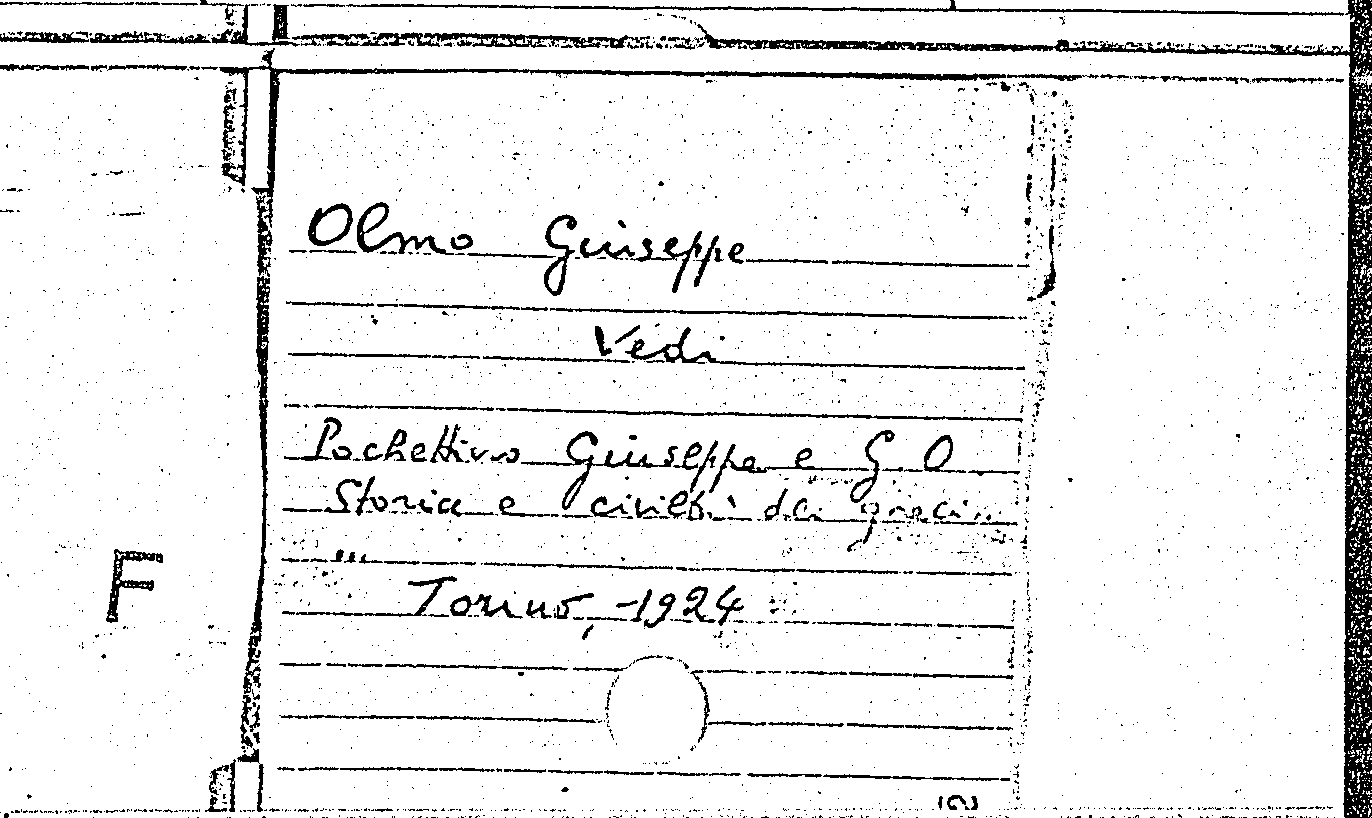 Olmo Giuseppe
Vedi
Pochettino Giuseppe e G. O
Storia e civiltà dei greci...
"'
Torino, 1924
F